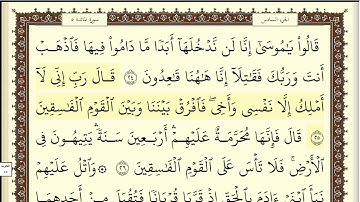 الجزء السادس سورة المائدة ٥
قَالُوا۟ يَـٰمُوسَىٰٓ إِنَّا لَن نَّدْخُلَهَآ أَبَدًا مَّا دَامُوا۟ فِيهَا فَٱذْهَبْ
أَنتَ وَرَبُّكَ فَقَـٰتِلَآ إِنَّا هَـٰهُنَا قَـٰعِدُونَ ٢٤ قَالَ رَبِّ إِنِّى لَآ
أَمْلِكُ إِلَّا نَفْسِى وَأَخِى فَٱفْرُقْ بَيْنَنَا وَبَيْنَ ٱلْقَوْمِ ٱلْفَـٰسِقِينَ
٢٥ قَالَ فَإِنَّهَا مُحَرَّمَةٌ عَلَيْهِمْ أَرْبَعِينَ سَنَةً يَتِيهُونَ فِى
ٱلْأَرْضِ فَلَا تَأْسَ عَلَى ٱلْقَوْمِ ٱلْفَـٰسِقِينَ ٢٦ وَٱتْلُ عَلَيْهِمْ
نَبَأَ ٱبْنَىْ ءَادَمَ بِٱلْحَقِّ إِذْ قَرَّبَا قُرْبَانًا فَتُقُبِّلَ مِنْ أَحَدِهِمَا